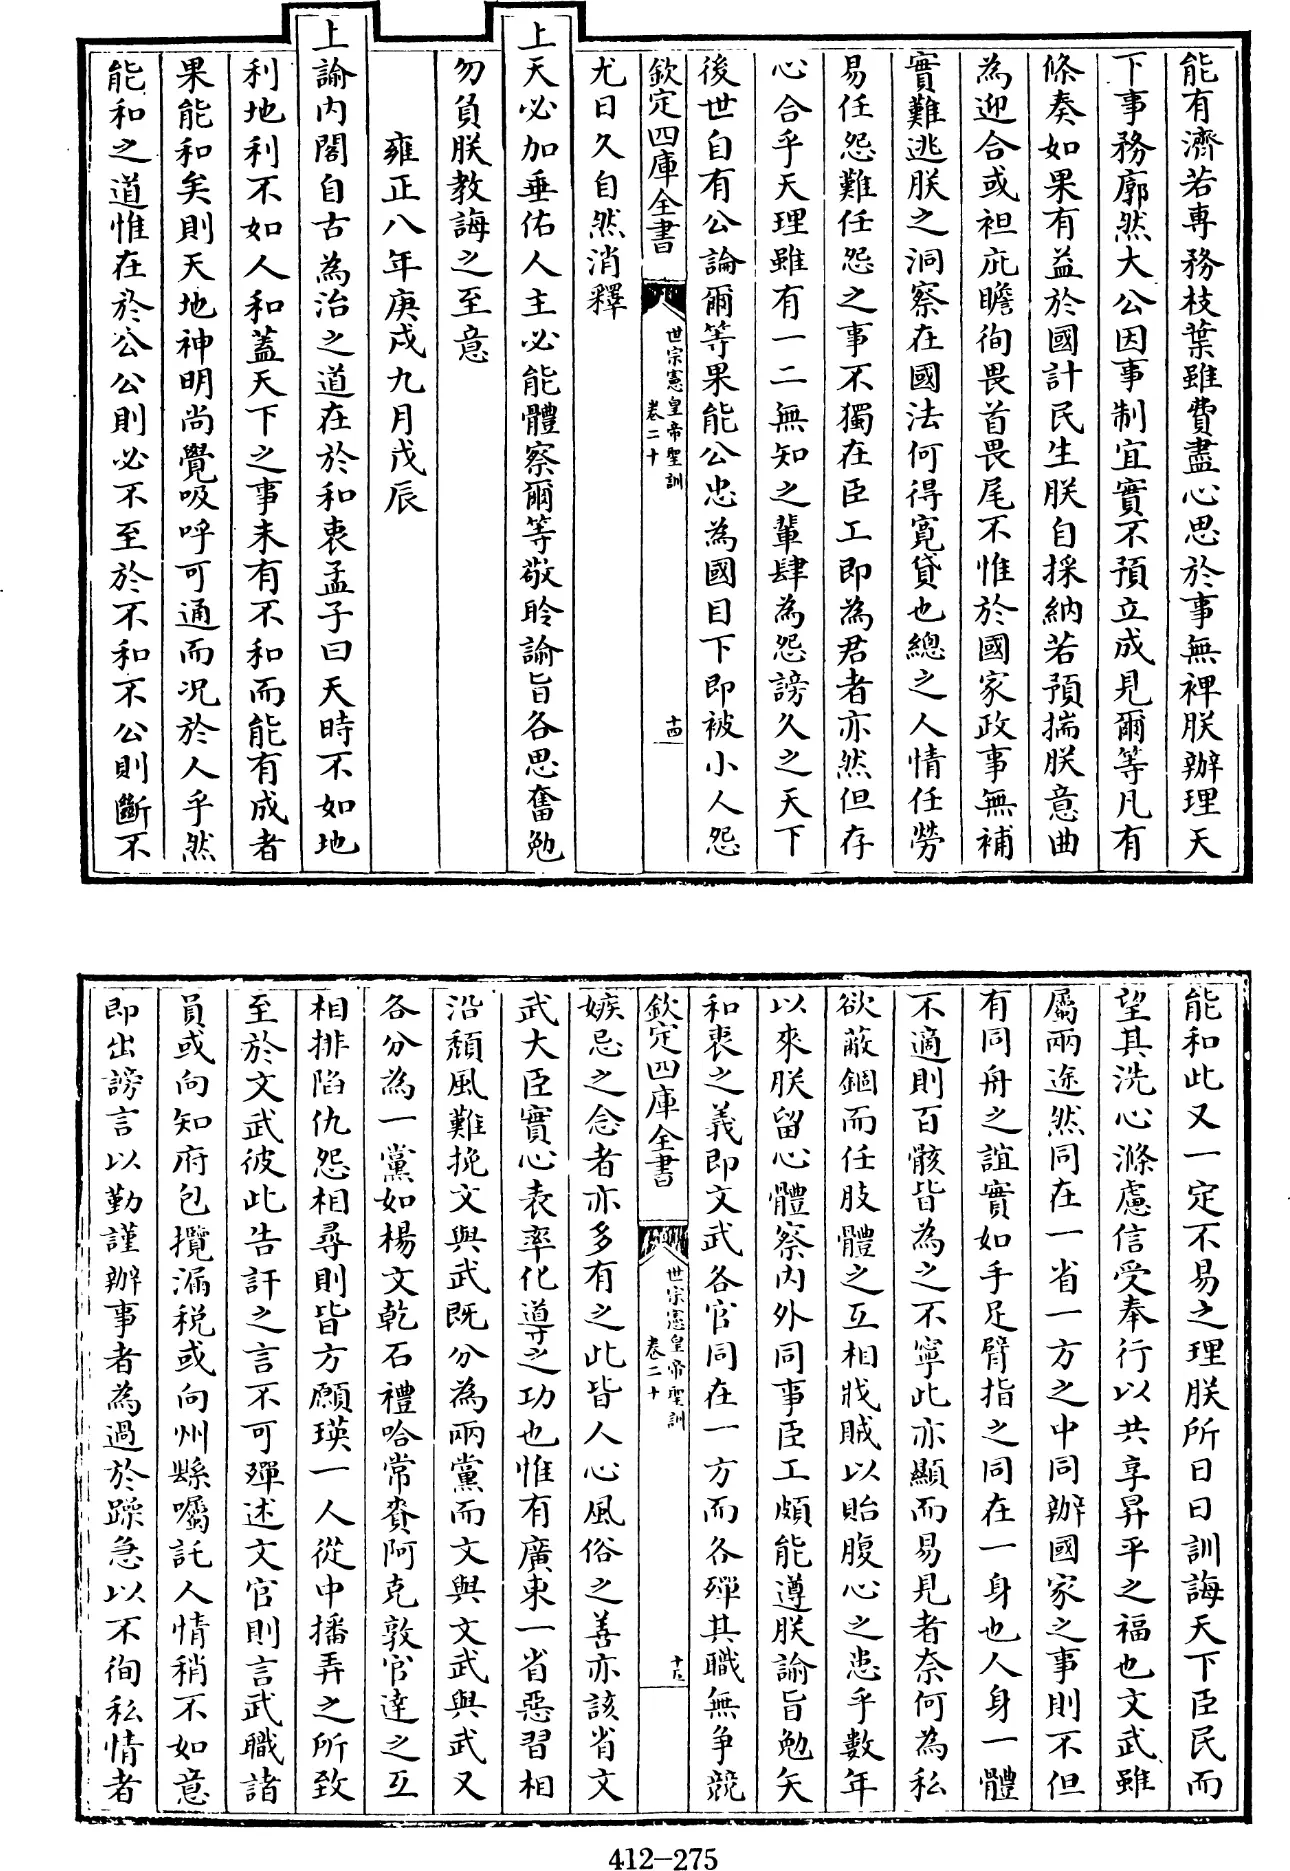 能有濟若專務枝葉雖費盡心思於事無裨朕辦理天
下事務廓然大公因事制宜實不預立成見爾等凡有
條奏如果有益於國計民生朕自採納若預揣朕意曲
為迎合或袒庇瞻徇畏首畏尾不惟於國家政事無補
實難逃朕之洞察在國法何得寬貸也總之人情任勞
易任怨難任怨之事不獨在臣工即為君者亦然但存
心合乎天理雖有一二無知之輩肆為怨謗久之天下
後世自有公論爾等果能公忠為國目下即被小人怨
欽定四庫全書
世宗憲皇帝聖訓
卷二十
十四
尤日久自然消釋
上天必加垂佑人主必能體察爾等敬聆諭旨各思奮勉
勿負朕教誨之至意
雍正八年庚戌九月戊辰
上諭內閣自古為治之道在於和衷孟子曰天時不如地
利地利不如人和蓋天下之事未有不和而能有成者
果能和矣則天地神明尚覺吸呼可通而況於人乎然
能和之道惟在於公公則必不至於不和不公則斷不
能和此又一定不易之理朕所日日訓誨天下臣民而
望其洗心滌慮信受奉行以共享昇平之福也文武雖
屬兩途然同在一省一方之中同辦國家之事則不但
有同舟之誼實如手足臂指之同在一身也人身一體
不適則百骸皆為之不寧此亦顯而易見者奈何為私
欲蔽錮而任肢體之互相戕賊以貽腹心之患乎數年
以來朕留心體察內外同事臣工頗能遵朕諭旨勉矢
和衷之義即文武各官同在一方而各殫其職無爭競
欽定四庫全書
世宗憲皇帝聖訓
卷二十
嫉忌之念者亦多有之此皆人心風俗之善亦該省文
武大臣實心表率化導之功也惟有廣東一省惡習相
沿頹風難挽文與武既分為兩黨而文與文武與武又
各分為一黨如楊文乾石禮哈常賚阿克敦官達之互
相排陷仇怨相尋則皆方願瑛一人從中播弄之所致
至於文武彼此告訐之言不可殫述文官則言武職諸
員或向知府包攬漏稅或向州縣囑託人情稍不如意
即出謗言以勤謹辦事者為過於躁急以不徇私情者
412-275